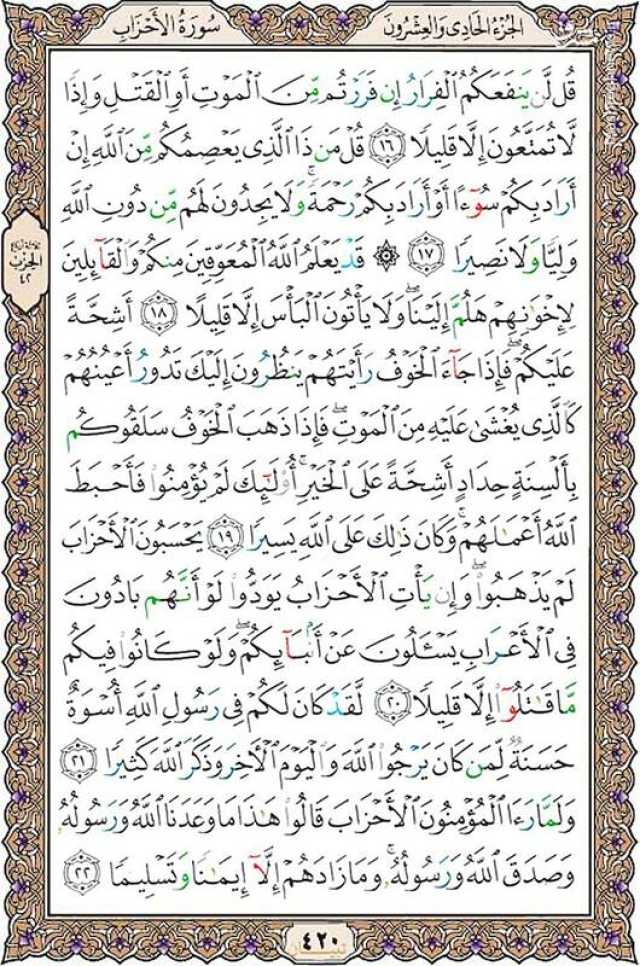 الجُزءُ الحَادِی وَالعِشرُونَ
سُورَةُ الأَحزَابِ
قُل لَّن يَنفَعَكُمُ ٱلْفِرَارُ إِن فَرَرْتُم مِّنَ ٱلْمَوْتِ أَوِ ٱلْقَتْلِ وَإِذًا
لَّا تُمَتَّعُونَ إِلَّا قَلِيلًا ١٦ قُلْ مَن ذَا ٱلَّذِى يَعْصِمُكُم مِّنَ ٱللَّهِ إِنْ
أَرَادَ بِكُمْ سُوٓءًا أَوْ أَرَادَ بِكُمْ رَحْمَةً ۚ وَلَا يَجِدُونَ لَهُم مِّن دُونِ ٱللَّهِ
وَلِيًّا وَلَا نَصِيرًا ١٧ ۞ قَدْ يَعْلَمُ ٱللَّهُ ٱلْمُعَوِّقِينَ مِنكُمْ وَٱلْقَآئِلِينَ
لِإِخْوَٰنِهِمْ هَلُمَّ إِلَيْنَا ۖ وَلَا يَأْتُونَ ٱلْبَأْسَ إِلَّا قَلِيلًا ١٨ أَشِحَّةً
عَلَيْكُمْ ۖ فَإِذَا جَآءَ ٱلْخَوْفُ رَأَيْتَهُمْ يَنظُرُونَ إِلَيْكَ تَدُورُ أَعْيُنُهُمْ
كَٱلَّذِى يُغْشَىٰ عَلَيْهِ مِنَ ٱلْمَوْتِ ۖ فَإِذَا ذَهَبَ ٱلْخَوْفُ سَلَقُوكُم
بِأَلْسِنَةٍ حِدَادٍ أَشِحَّةً عَلَى ٱلْخَيْرِ ۚ أُو۟لَٰٓئِكَ لَمْ يُؤْمِنُوا۟ فَأَحْبَطَ
ٱللَّهُ أَعْمَٰلَهُمْ ۚ وَكَانَ ذَٰلِكَ عَلَى ٱللَّهِ يَسِيرًا ١٩ يَحْسَبُونَ ٱلْأَحْزَابَ
لَمْ يَذْهَبُوا۟ ۖ وَإِن يَأْتِ ٱلْأَحْزَابُ يَوَدُّوا۟ لَوْ أَنَّهُم بَادُونَ
فِى ٱلْأَعْرَابِ يَسْـَٔلُونَ عَنْ أَنۢبَآئِكُمْ ۖ وَلَوْ كَانُوا۟ فِيكُم
مَّا قَٰتَلُوٓا۟ إِلَّا قَلِيلًا ٢٠ لَّقَدْ كَانَ لَكُمْ فِى رَسُولِ ٱللَّهِ أُسْوَةٌ
حَسَنَةٌ لِّمَن كَانَ يَرْجُوا۟ ٱللَّهَ وَٱلْيَوْمَ ٱلْءَاخِرَ وَذَكَرَ ٱللَّهَ كَثِيرًا ٢١
وَلَمَّا رَءَا ٱلْمُؤْمِنُونَ ٱلْأَحْزَابَ قَالُوا۟ هَٰذَا مَا وَعَدَنَا ٱللَّهُ وَرَسُولُهُۥ
وَصَدَقَ ٱللَّهُ وَرَسُولُهُۥ ۚ وَمَا زَادَهُمْ إِلَّآ إِيمَٰنًا وَتَسْلِيمًا ٢٢
٤٢٠
تبیان